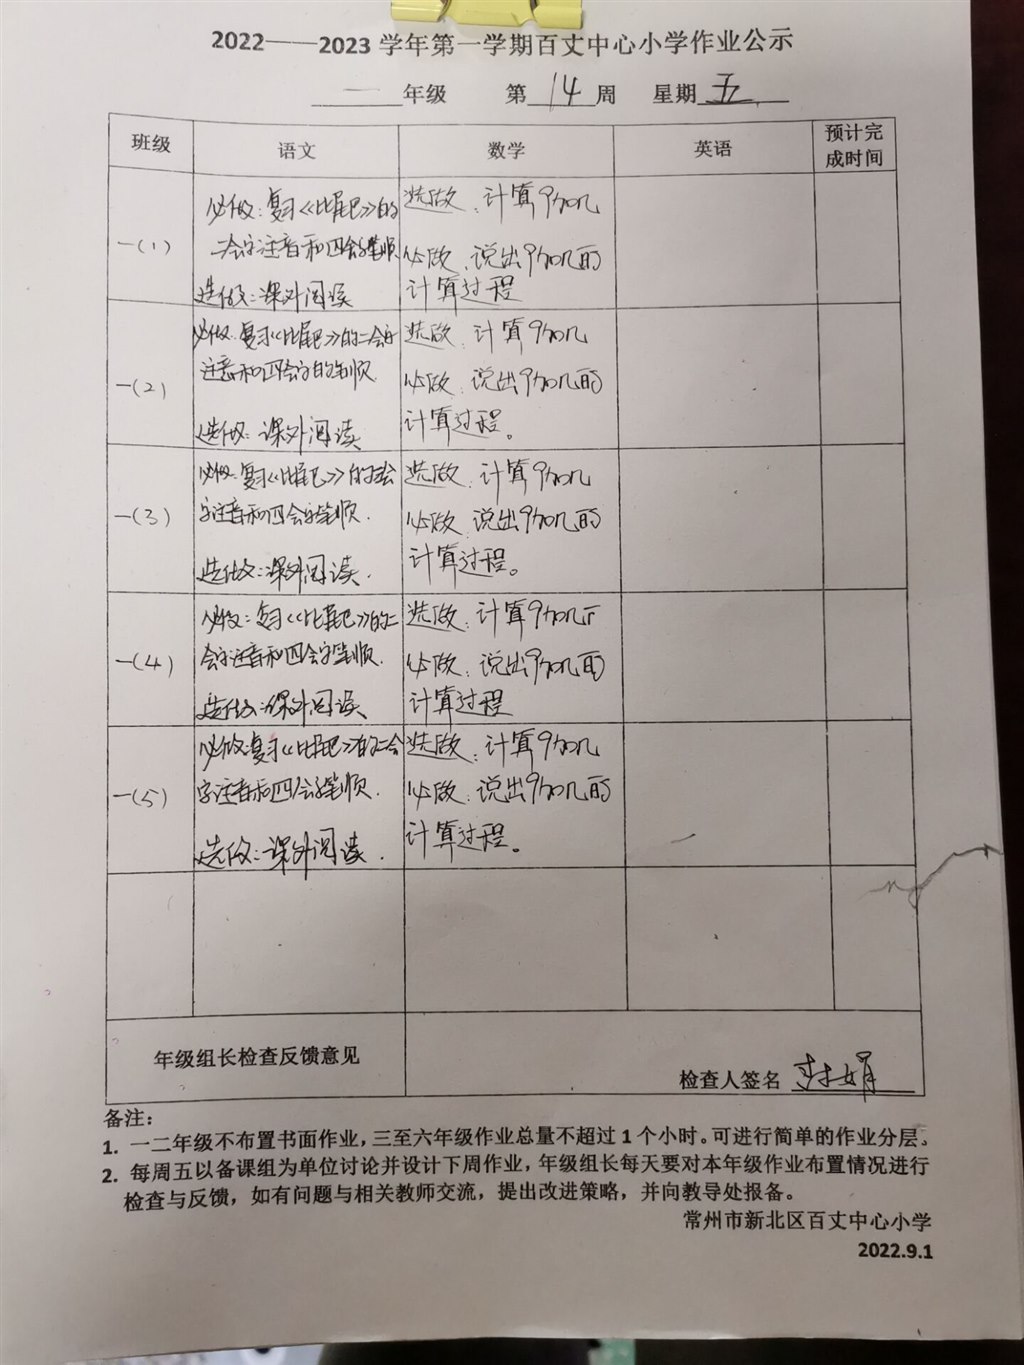 2022——2023 学年第一学期百丈中心小学作业公示
一 年级 第 14 周 星期 五
班级 语文 数学 英语 预计完成时间
一(1)
必做:复习《比尾巴》的
二会字注音和四会字笔顺
选做:课外阅读
选做:计算9加几
必做:说出9加几的
计算过程
一(2)
必做:复习《比尾巴》的二会字
注音和四会字的笔顺.
选做:课外阅读
选做:计算9加几
必做:说出9加几的
计算过程。
一(3)
必做:复习《比尾巴》的二会
字注音和四会字笔顺.
选做:课外阅读.
选做:计算9加几
必做:说出9加几的
计算过程。
一(4)
必做:复习《比尾巴》的二
会字注音和四会字笔顺.
选做:课外阅读
选做:计算9加几
必做:说出9加几的
计算过程
一(5)
必做:复习《比尾巴》的二会
字注音和四会字笔顺.
选做:课外阅读.
选做:计算9加几
必做:说出9加几的
计算过程。
年级组长检查反馈意见
检查人签名
备注:
1. 一二年级不布置书面作业,三至六年级作业总量不超过 1 个小时。可进行简单的作业分层。
2. 每周五以备课组为单位讨论并设计下周作业,年级组长每天要对本年级作业布置情况进行
检查与反馈,如有问题与相关教师交流,提出改进策略,并向教导处报备。
常州市新北区百丈中心小学
2022.9.1